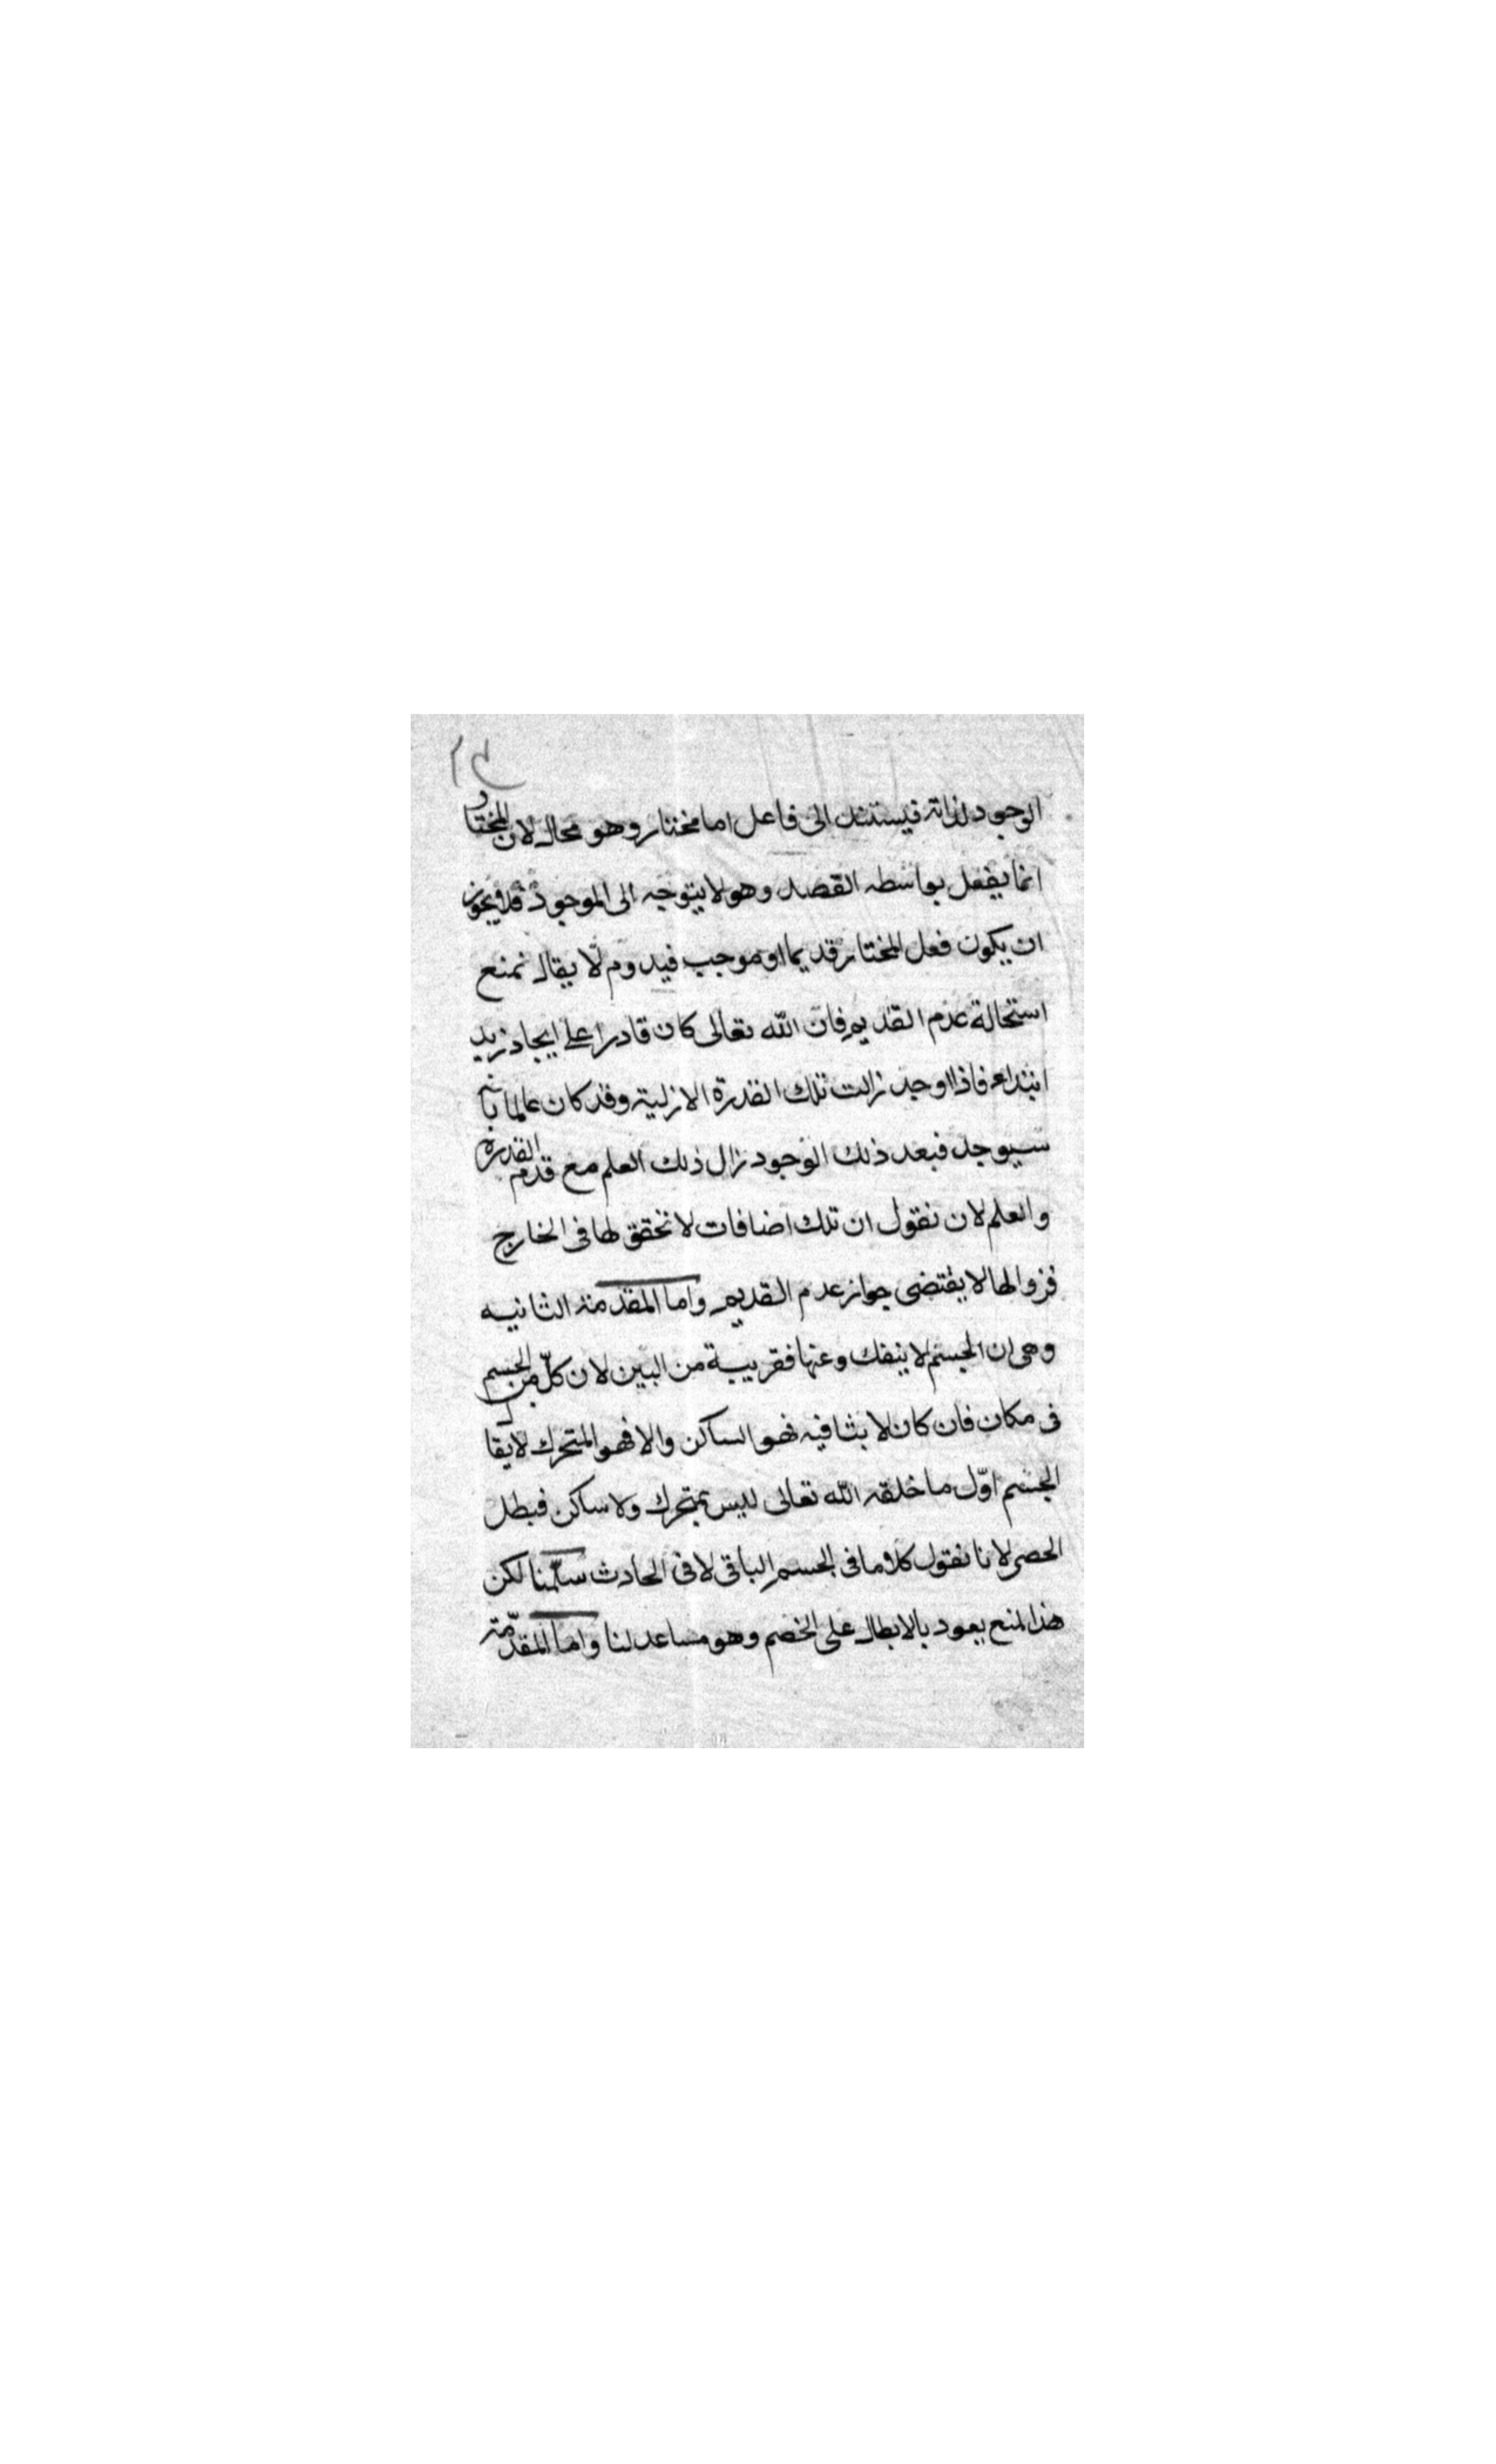 الوجود لذاته فيستند الى فاعل اما مختار وهو محال لان المختار
انما يفعل بواسطه القصد وهو لا يتوجه الى الموجود فلا يجوز
ان يكون فعل المختار قديما او موجب فيدوم لا يقال نمنع
استحالة عدم القديم فان الله تعالى كان قادرا على ايجاد زيد
ابتداء فاذا اوجد زالت تلك القدرة الازلية وقد كان عالما بانه
سيوجد فبعد ذلك الوجود زال ذلك العلم مع قدم القدرة
والعلم لان نقول ان تلك اضافات لا تحقق لها فى الخارج
فزوالها لا يقتضى جواز عدم القديم واما المقدمة الثانيه
وهى ان الجسم لا ينفك وعنها فقريبة من البين لان كل من الجسم
فى مكان فان كان لا بثا فيه فهو الساكن والا فهو المتحرك لا يقال
الجسم اوّل ما خلقه الله تعالى ليس بمتحرك ولا ساكن فبطل
الحصر لانا نقول كلامنا فى الجسم الباقى لا فى الحادث سلّمنا لكن
هذا المنع يعود بالابطال على الخصم وهو مساعد لنا واما المقدّمة